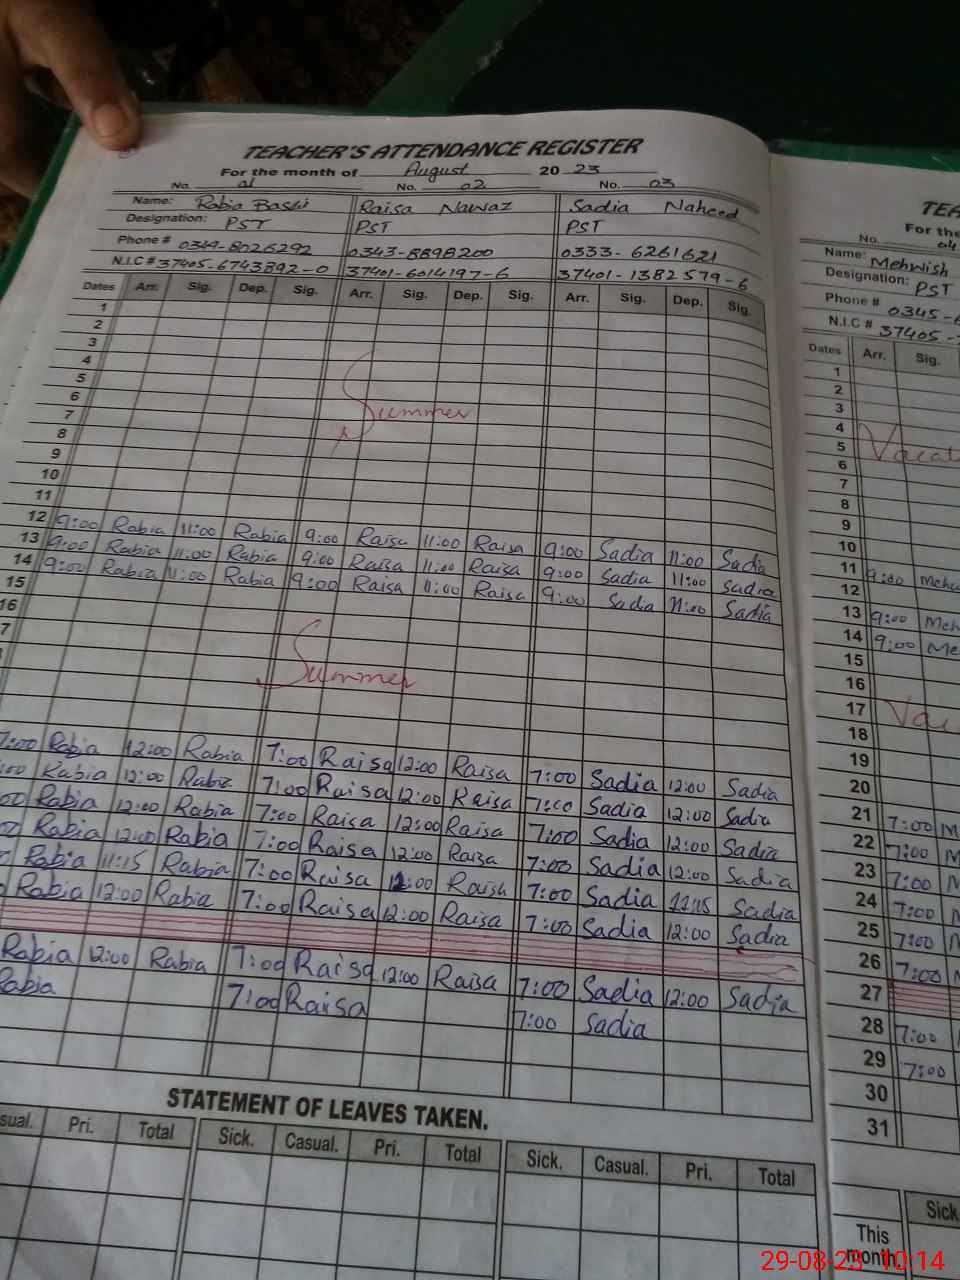 TEACHER'S ATTENDANCE REGISTER
For the month of August 20 23
No. 01 No. 02 No. 03
Name: Rabia Raisa Nawaz Sadia Naheed
Designation: PST PST PST
Phone # 0349-8026292 0343-8898200 0333-6261621
N.I.C # 37405-6743892-0 37401-6014197-6 37401-1382579-6
Dates Arr. Sig. Dep. Sig. Arr. Sig. Dep. Sig. Arr. Sig. Dep. Sig.
1
2
3
4
5
6
7 Summer
8
9
10
11
12 9:00 Rabia 11:00 Rabia 9:00 Raisa 11:00 Raisa 9:00 Sadia 11:00 Sadia
13 9:00 Rabia 11:00 Rabia 9:00 Raisa 11:00 Raisa 9:00 Sadia 11:00 Sadia
14 9:00 Rabia 11:00 Rabia 9:00 Raisa 11:00 Raisa 9:00 Sadia 11:00 Sadia
15
16
7
Summer
7:00 Rabia 12:00 Rabia 7:00 Raisa 12:00 Raisa 7:00 Sadia 12:00 Sadia
:00 Rabia 12:00 Rabia 7:00 Raisa 12:00 Raisa 7:00 Sadia 12:00 Sadia
00 Rabia 12:00 Rabia 7:00 Raisa 12:00 Raisa 7:00 Sadia 12:00 Sadia
00 Rabia 12:00 Rabia 7:00 Raisa 12:00 Raisa 7:00 Sadia 12:00 Sadia
0 Rabia 11:15 Rabia 7:00 Raisa 12:00 Raisa 7:00 Sadia 11:15 Sadia
Rabia 12:00 Rabia 7:00 Raisa 12:00 Raisa 7:00 Sadia 12:00 Sadia
Rabia 12:00 Rabia 7:00 Raisa 12:00 Raisa 7:00 Sadia 12:00 Sadia
Rabia 7:00 Raisa 7:00 Sadia
STATEMENT OF LEAVES TAKEN.
sual. Pri. Total Sick. Casual. Pri. Total Sick. Casual. Pri. Total
TEA
For the
No. 04
Name: Mehwish
Designation: PST
Phone # 0345-6
N.I.C # 37405-7
Dates Arr. Sig.
1
2
3
4
5 Vacat
6
7
8
9
10
11 9:00 Mehw
12
13 9:00 Meh
14 9:00 Me
15
16
17 Vac
18
19
20
21 7:00 M
22 7:00 M
23 7:00 M
24 7:00 M
25 7:00 M
26 7:00 M
27
28 7:00
29 7:00
30
31
Sick
This
month
29-08-23 10:14